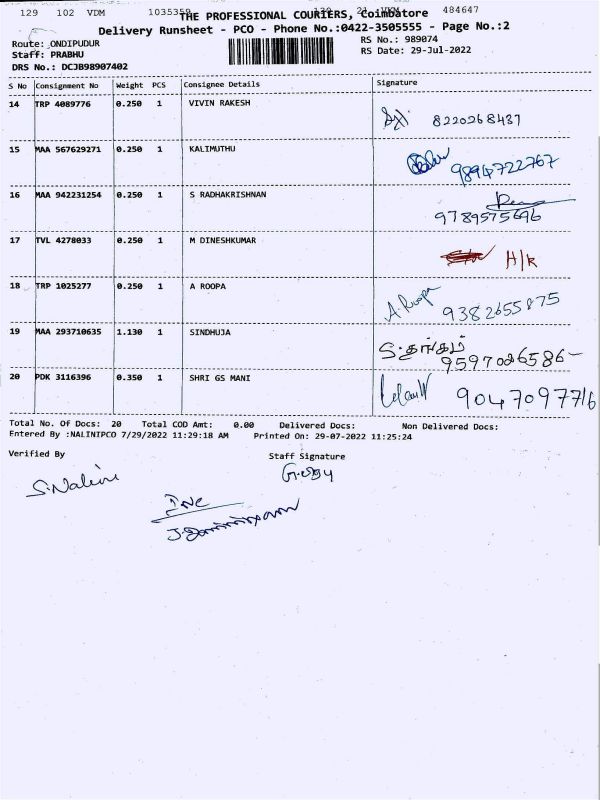 129 102 VDM 1035359 139 21 VKM 484647
THE PROFESSIONAL COURIERS, Coimbatore
Delivery Runsheet - PCO - Phone No.:0422-3505555 - Page No.:2
Route: ONDIPUDUR RS No.: 989074
Staff: PRABHU RS Date: 29-Jul-2022
DRS No.: DCJB98907402
S No Consignment No Weight PCS Consignee Details Signature
14 TRP 4089776 0.250 1 VIVIN RAKESH 8220268437
15 MAA 567629271 0.250 1 KALIMUTHU 9894722767
16 MAA 942231254 0.250 1 S RADHAKRISHNAN 9789575696
17 TVL 4278033 0.250 1 M DINESHKUMAR H/k
18 TRP 1025277 0.250 1 A ROOPA A. Roopa 9382655875
19 MAA 293710635 1.130 1 SINDHUJA S. தங்கம் 9597086586
20 PDK 3116396 0.350 1 SHRI GS MANI 9047097716
Total No. Of Docs: 20 Total COD Amt: 0.00 Delivered Docs: Non Delivered Docs:
Entered By :NALINIPCO 7/29/2022 11:29:18 AM Printed On: 29-07-2022 11:25:24
Verified By Staff Signature
S. Nalini